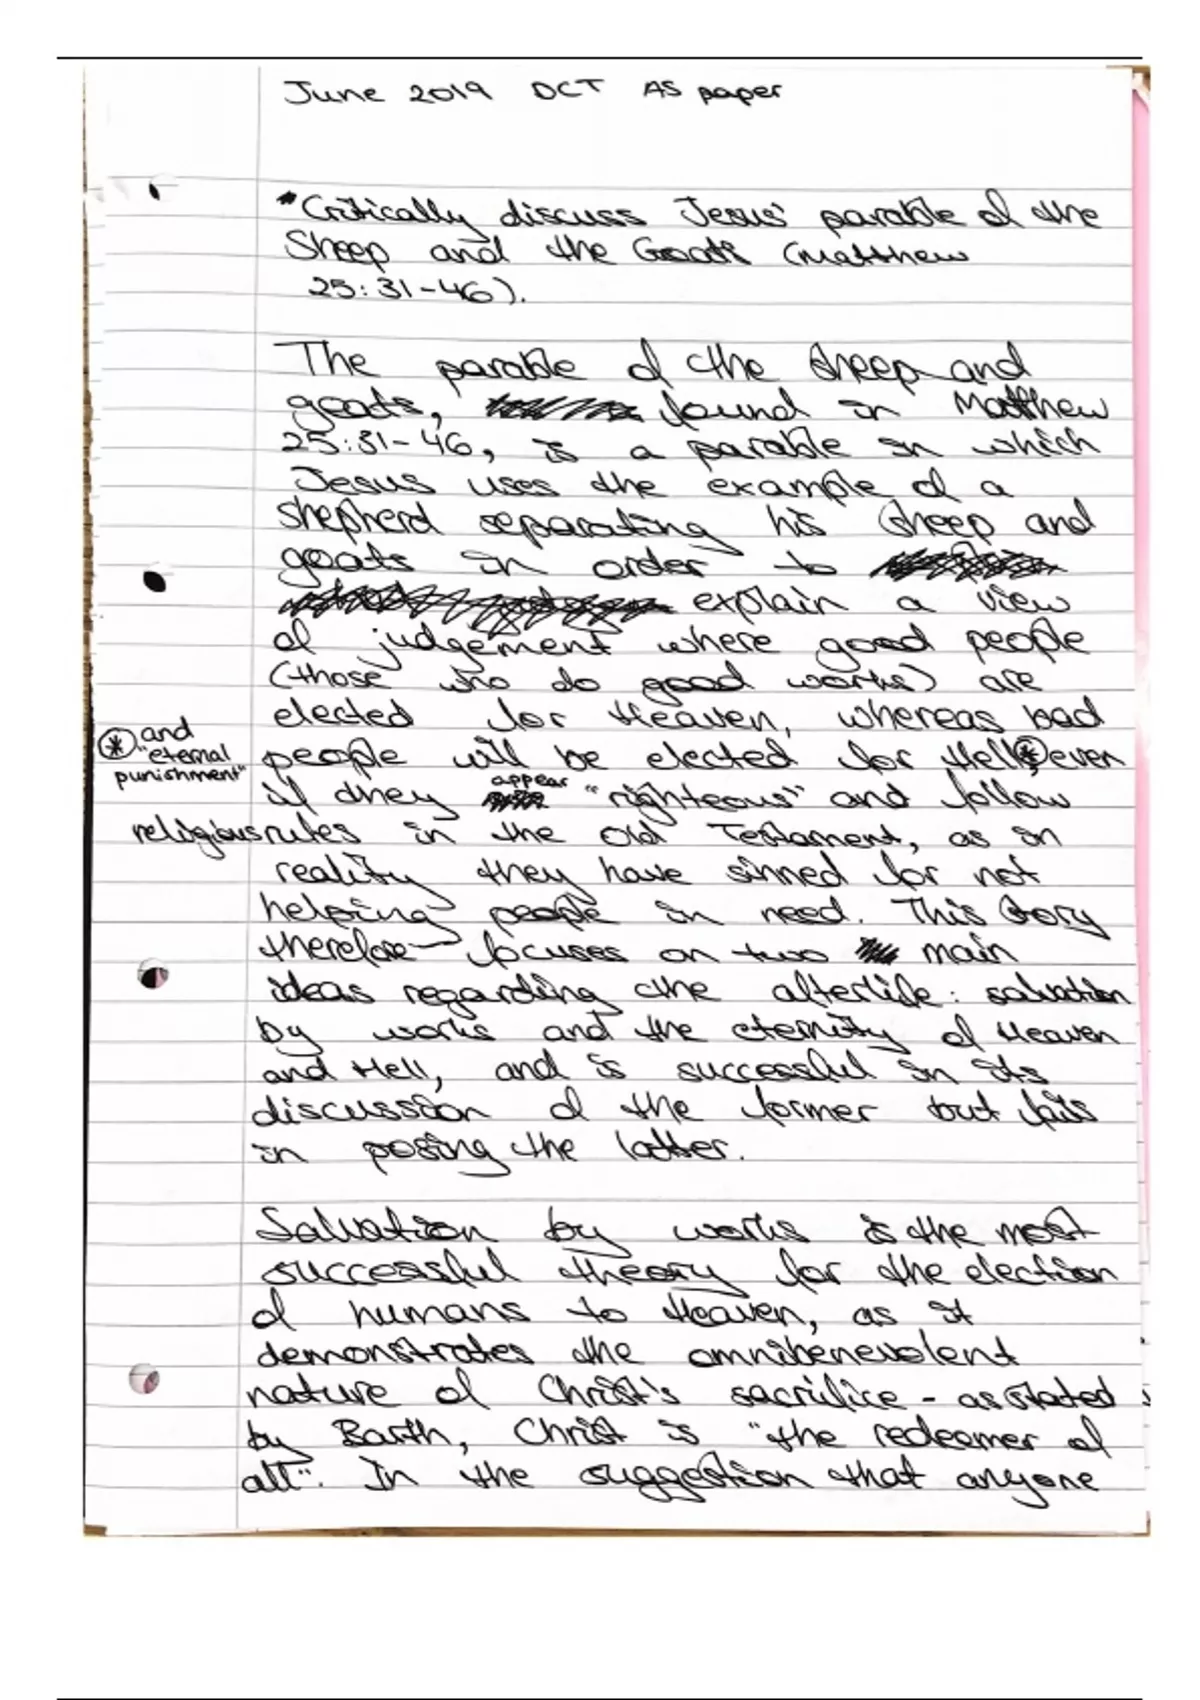 June 2019 DCT AS paper
*Critically discuss Jesus' parable of the
Sheep and the Goats (Matthew
25:31-46).
The parable of the sheep and
goats, found in Matthew
25:31-46, is a parable in which
Jesus uses the example of a
shepherd separating his sheep and
goats in order to
explain a view
of judgement where good people
(those who do good works) are
elected for Heaven, whereas bad
people will be elected for Hell * even
* and
"eternal
punishment"
if they appear "righteous" and follow
religious rules in the Old Testament, as in
reality they have sinned for not
helping people in need. This story
therefore focuses on two main
ideas regarding the afterlife: salvation
by works and the eternity of Heaven
and Hell, and is successful in its
discussion of the former but fails
in posing the latter.
Salvation by works is the most
successful theory for the election
of humans to Heaven, as it
demonstrates the omnibenevolent
nature of Christ's sacrifice - as stated
by Barth, Christ is "the redeemer of
all". In the suggestion that anyone